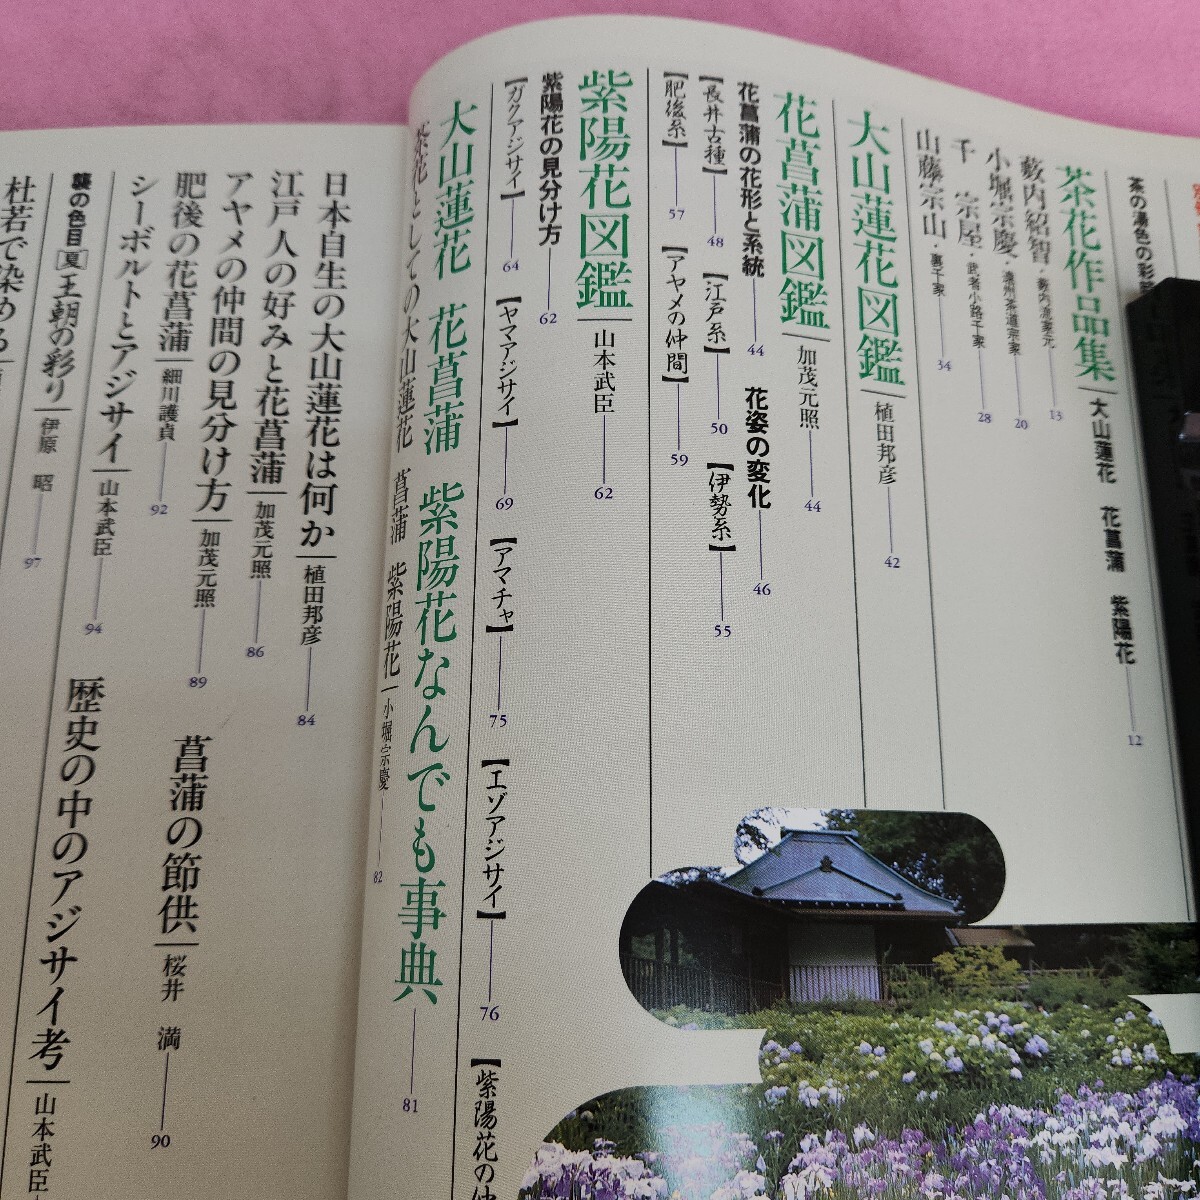 茶の湯色の彩
茶花作品集 大山蓮花 花菖蒲 紫陽花 12
藪内紹智・藪内流家元 13
小堀宗慶・遠州茶道宗家 20
千 宗屋・武者小路千家 28
山藤宗山・裏千家 34
大山蓮花図鑑 植田邦彦 42
花菖蒲図鑑 加茂元照 44
花菖蒲の花形と系統 44 花姿の変化 46
【長井古種】 48 【江戸系】 50 【伊勢系】 55
【肥後系】 57 【アヤメの仲間】 59
紫陽花図鑑 山本武臣 62
紫陽花の見分け方 62
【ガクアジサイ】 64 【ヤマアジサイ】 69 【アマチャ】 75 【エゾアジサイ】 76 【紫陽花の仲
大山蓮花 花菖蒲 紫陽花なんでも事典 81
茶花としての大山蓮花 菖蒲 紫陽花 小堀宗慶 82
日本自生の大山蓮花は何か 植田邦彦 84
江戸人の好みと花菖蒲 加茂元照 86
アヤメの仲間の見分け方 加茂元照 89
肥後の花菖蒲 細川護貞 92 菖蒲の節供 桜井 満 90
シーボルトとアジサイ 山本武臣 94
襲の色目［夏］王朝の彩り 伊原 昭 97 歴史の中のアジサイ考 山本武臣
杜若で染める